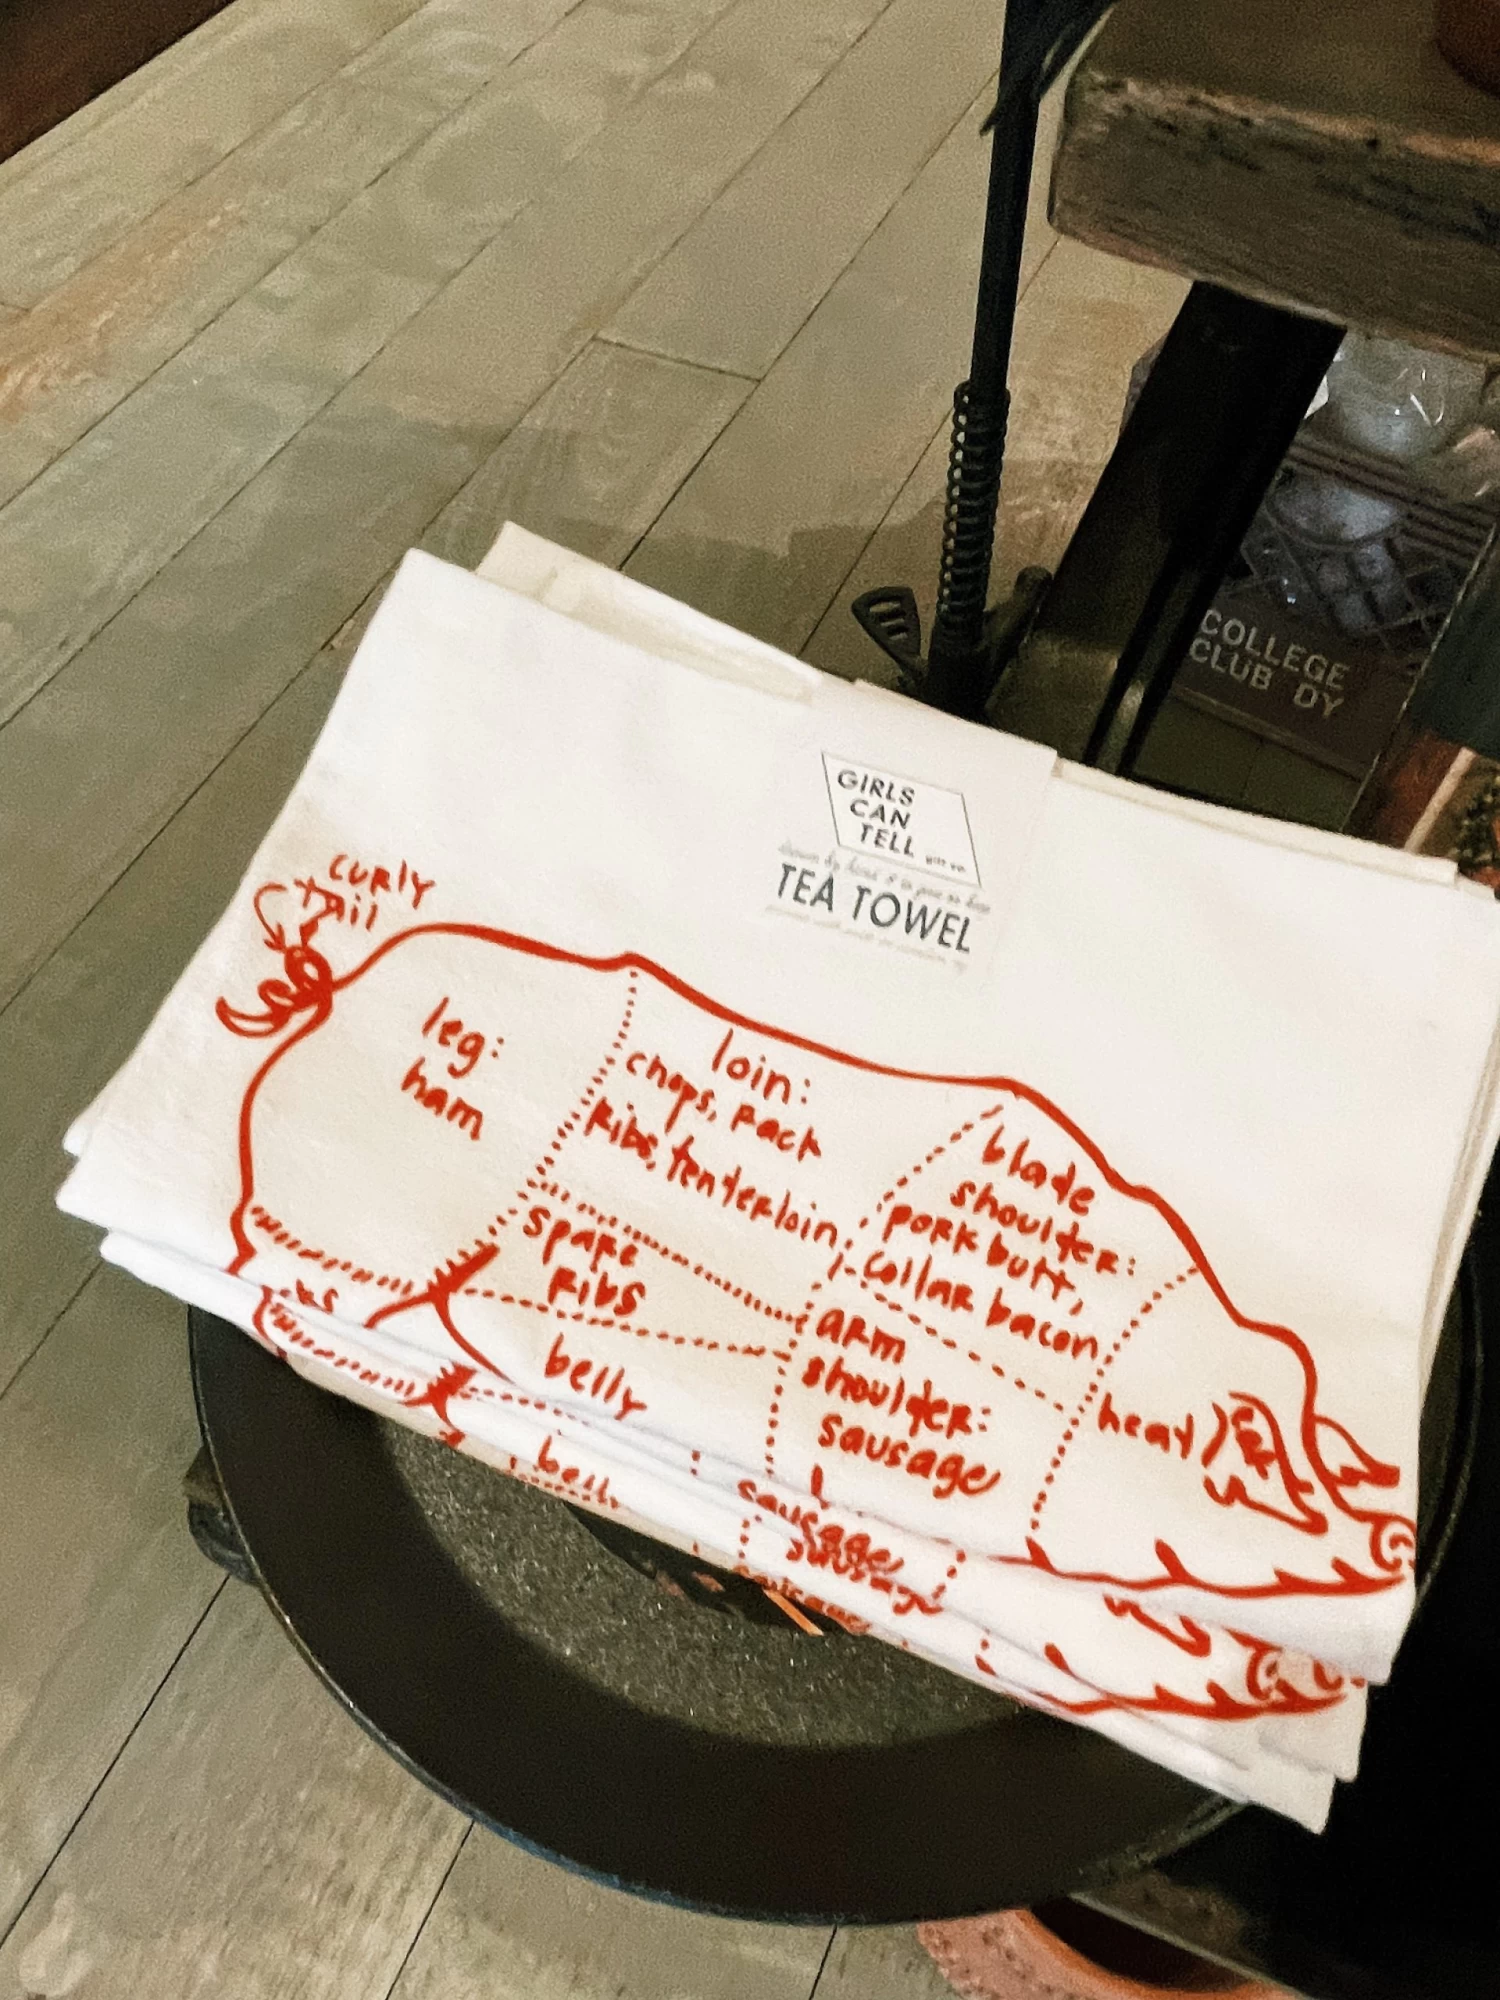 COLLEGE
CLUB DY
GIRLS
CAN
TELL
TEA TOWEL
curly
tail
leg:
ham
loin:
chops, rack
ribs, tenterloin
blade
shoulter:
pork butt,
collar bacon
spare
ribs
arm
shoulter:
sausage
belly
head
sausage
sausage